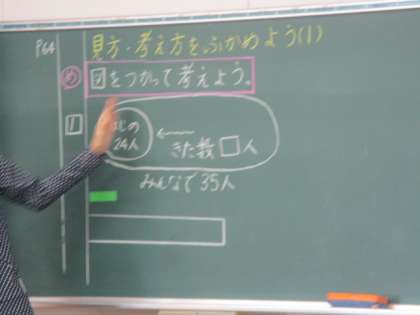 P64
見方・考え方をふかめよう(1)
め
図をつかって考えよう。
1
じめの
24人
きた数□人
みんなで35人